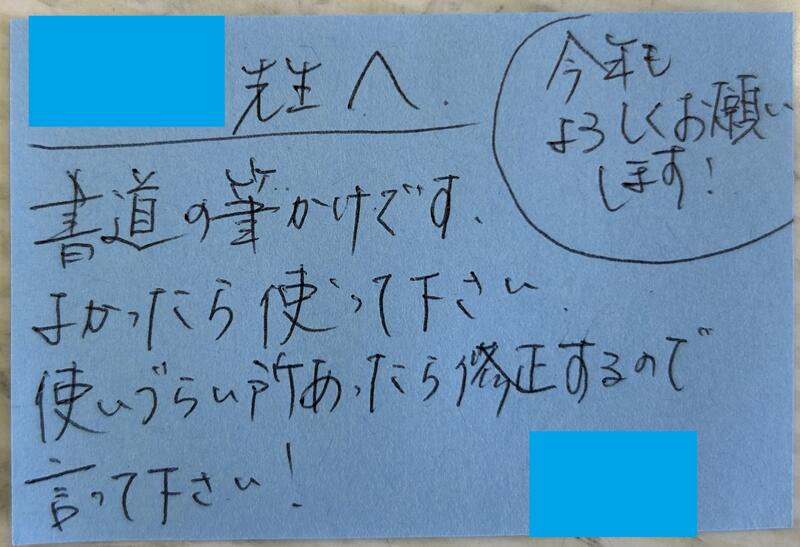 先生へ.
今年も
よろしくお願い
します!
書道の筆かけです.
よかったら使って下さい.
使いづらい所あったら修正するので
言って下さい!